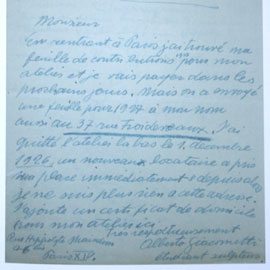 Monsieur
En rentrant à Paris j'ai trouvé ma
feuille de contributions pour mon
atelier et je vais payer dans les
prochains jours. Mais on a envoyé
une feuille pour 1927 à mon nom
aussi au 37 rue Froidevaux. J'ai
quitté l'atelier là bas le 1. decembre
1926, un nouveau locataire a pris
ma place immédiatement et depuis
je ne suis plus rien à cette adresse.
J'ajoute un certificat de domicile
pour mon atelier ici
Très respectueusement
Rue Hippolyte Maindron Alberto Giacometti
46 Paris XIV. étudiant sculpteur